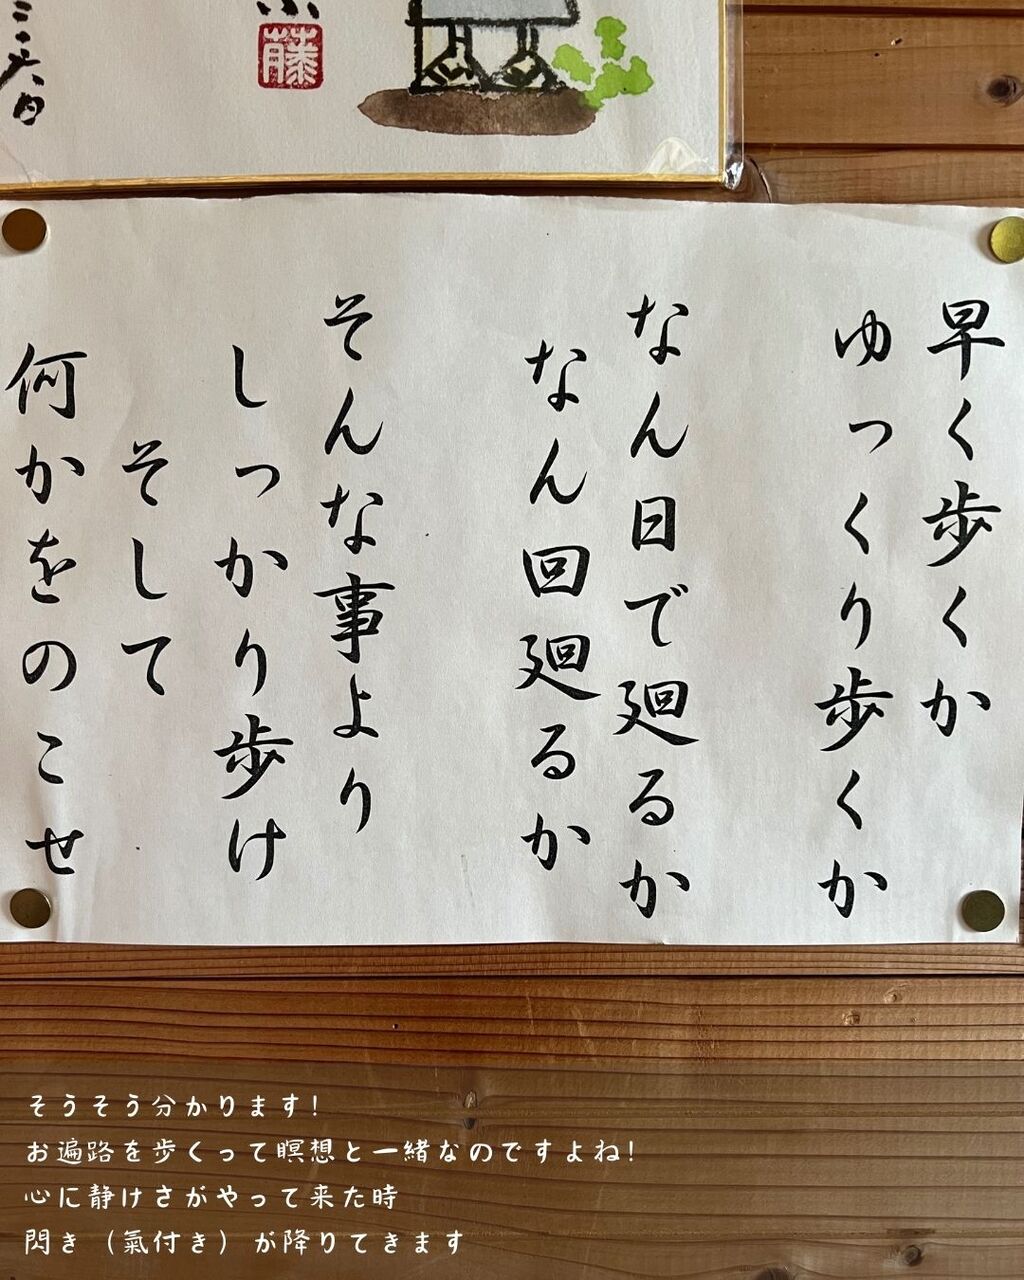 藤
早く歩くか
ゆっくり歩くか
なん日で廻るか
なん回廻るか
そんな事より
しっかり歩け
そして
何かをのこせ
そうそう分かります!
お遍路を歩くって瞑想と一緒なのですよね!
心に静けさがやって来た時
閃き（氣付き）が降りてきます